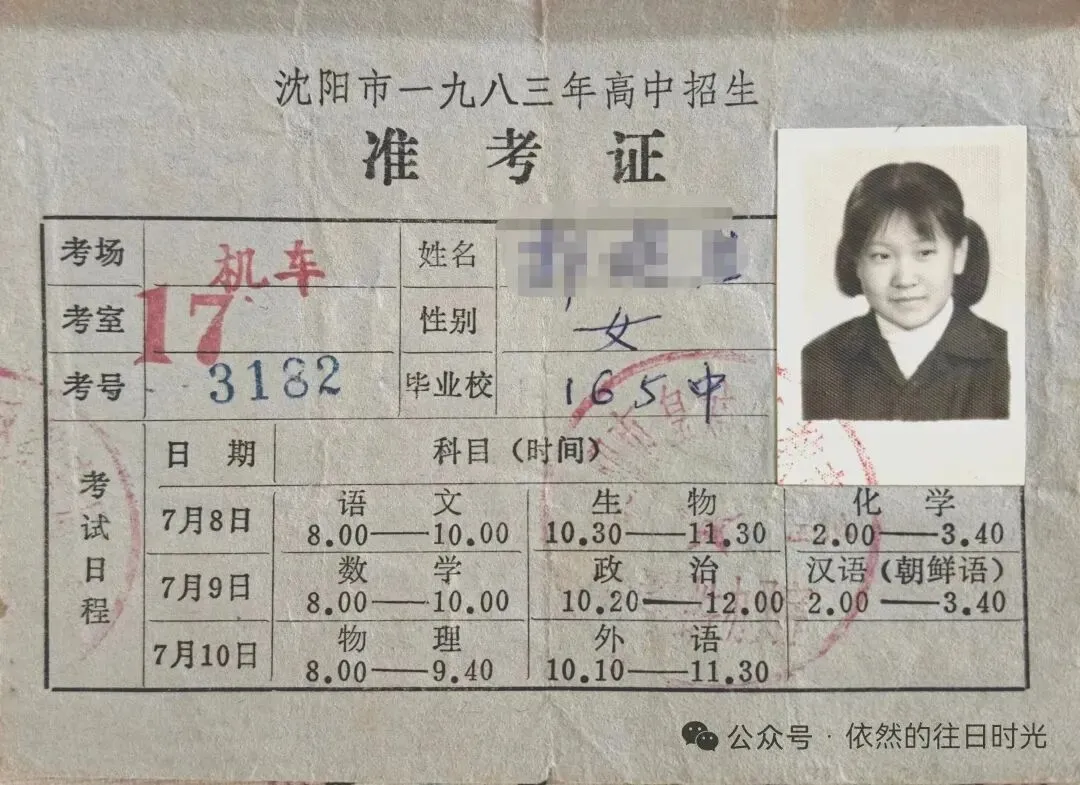 沈阳市一九八三年高中招生
准考证
考场 机车 姓名
考室 17 性别 女
考号 3182 毕业校 165中
考试日程
日期 科目(时间)
7月8日 语文 8.00——10.00 生物 10.30——11.30 化学 2.00——3.40
7月9日 数学 8.00——10.00 政治 10.20——12.00 汉语(朝鲜语) 2.00——3.40
7月10日 物理 8.00——9.40 外语 10.10——11.30
公众号·依然的往日时光